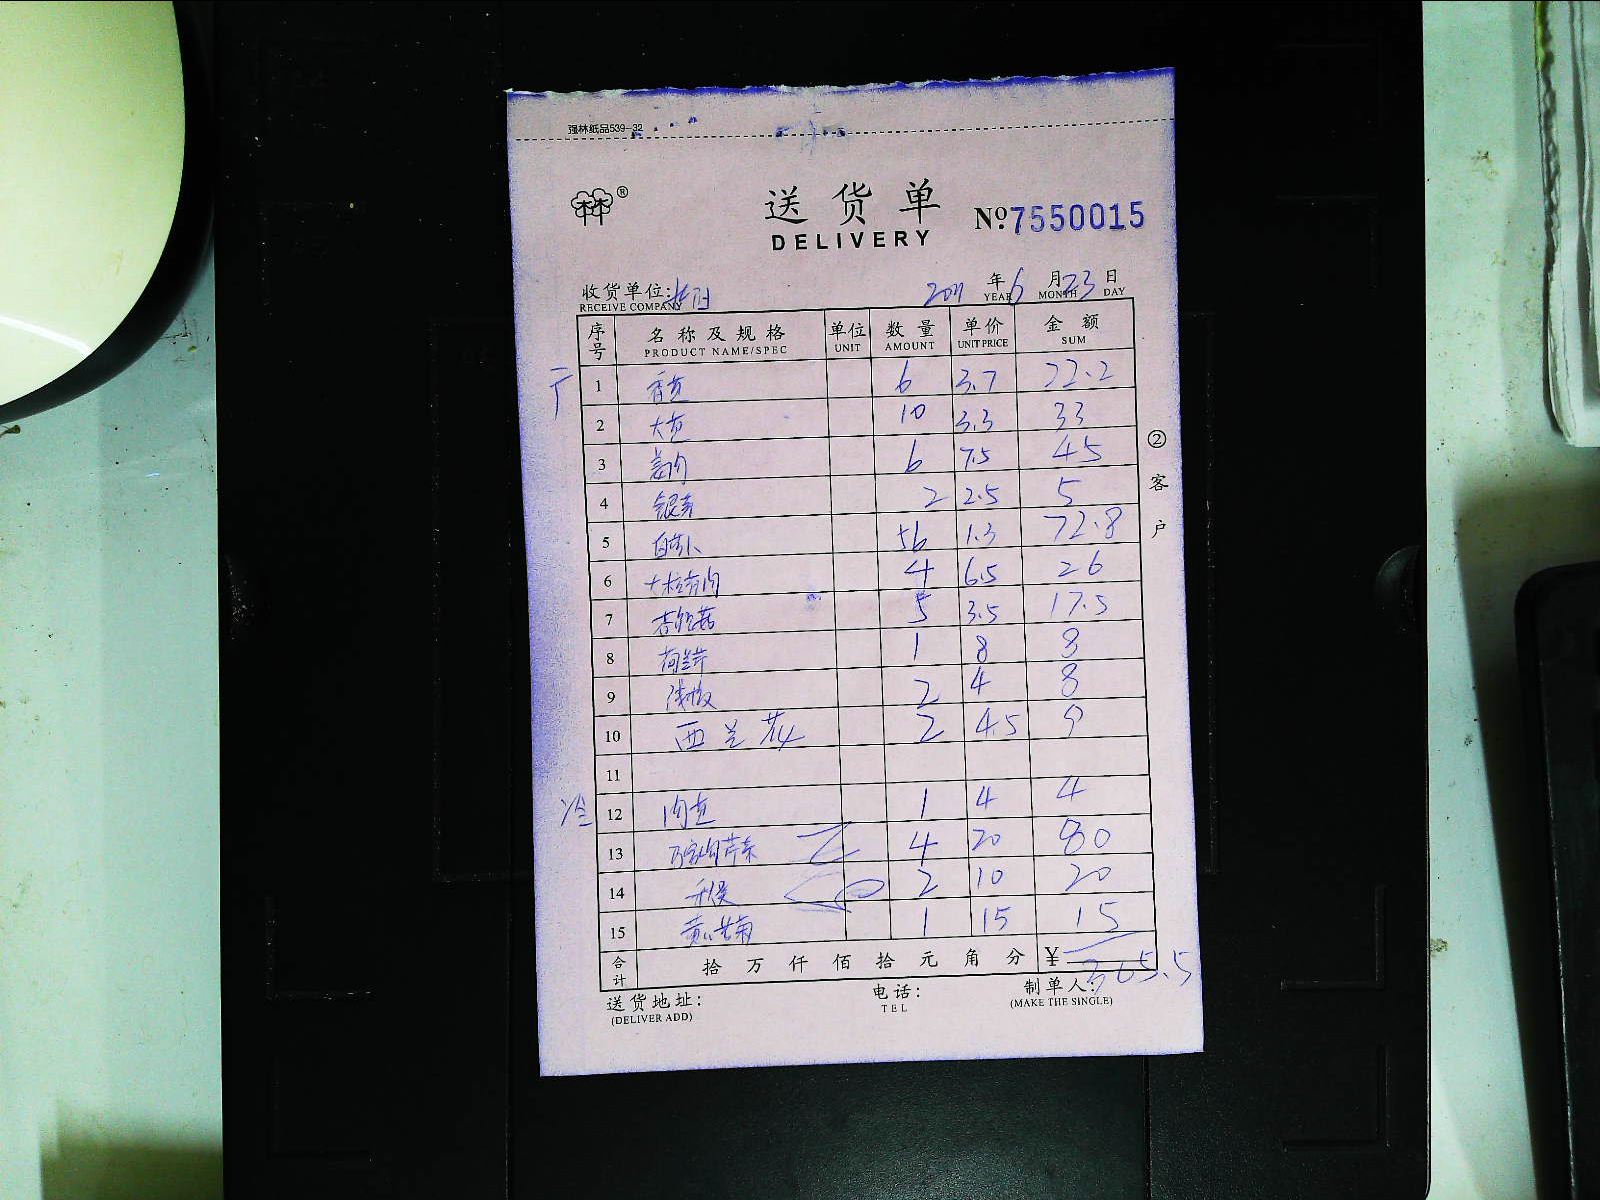 强林纸品539-32
®
送货单 №7550015
DELIVERY
收货单位: 年 6 月 23 日
RECEIVE COMPANY YEAR MONTH DAY
序号 名称及规格 单位 数量 单价 金额
PRODUCT NAME/SPEC UNIT AMOUNT UNIT PRICE SUM
1 香芹 6 3.7 22.2
2 大 10 3.3 33
3 6 7.5 45
4 银芽 2 2.5 5
5 白萝卜 56 1.3 72.8
6 4 6.5 26
7 杏鲍菇 5 3.5 17.5
8 荷兰芹 1 8 8
9 2 4 8
10 西兰花 2 4.5 9
11
冷 12 1 4 4
13 4 20 80
14 2 10 20
15 1 15 15
合计 拾 万 仟 佰 拾 元 角 分 ¥ 365.5
送货地址: 电话: 制单人:
(DELIVER ADD) TEL (MAKE THE SINGLE)
② 客户